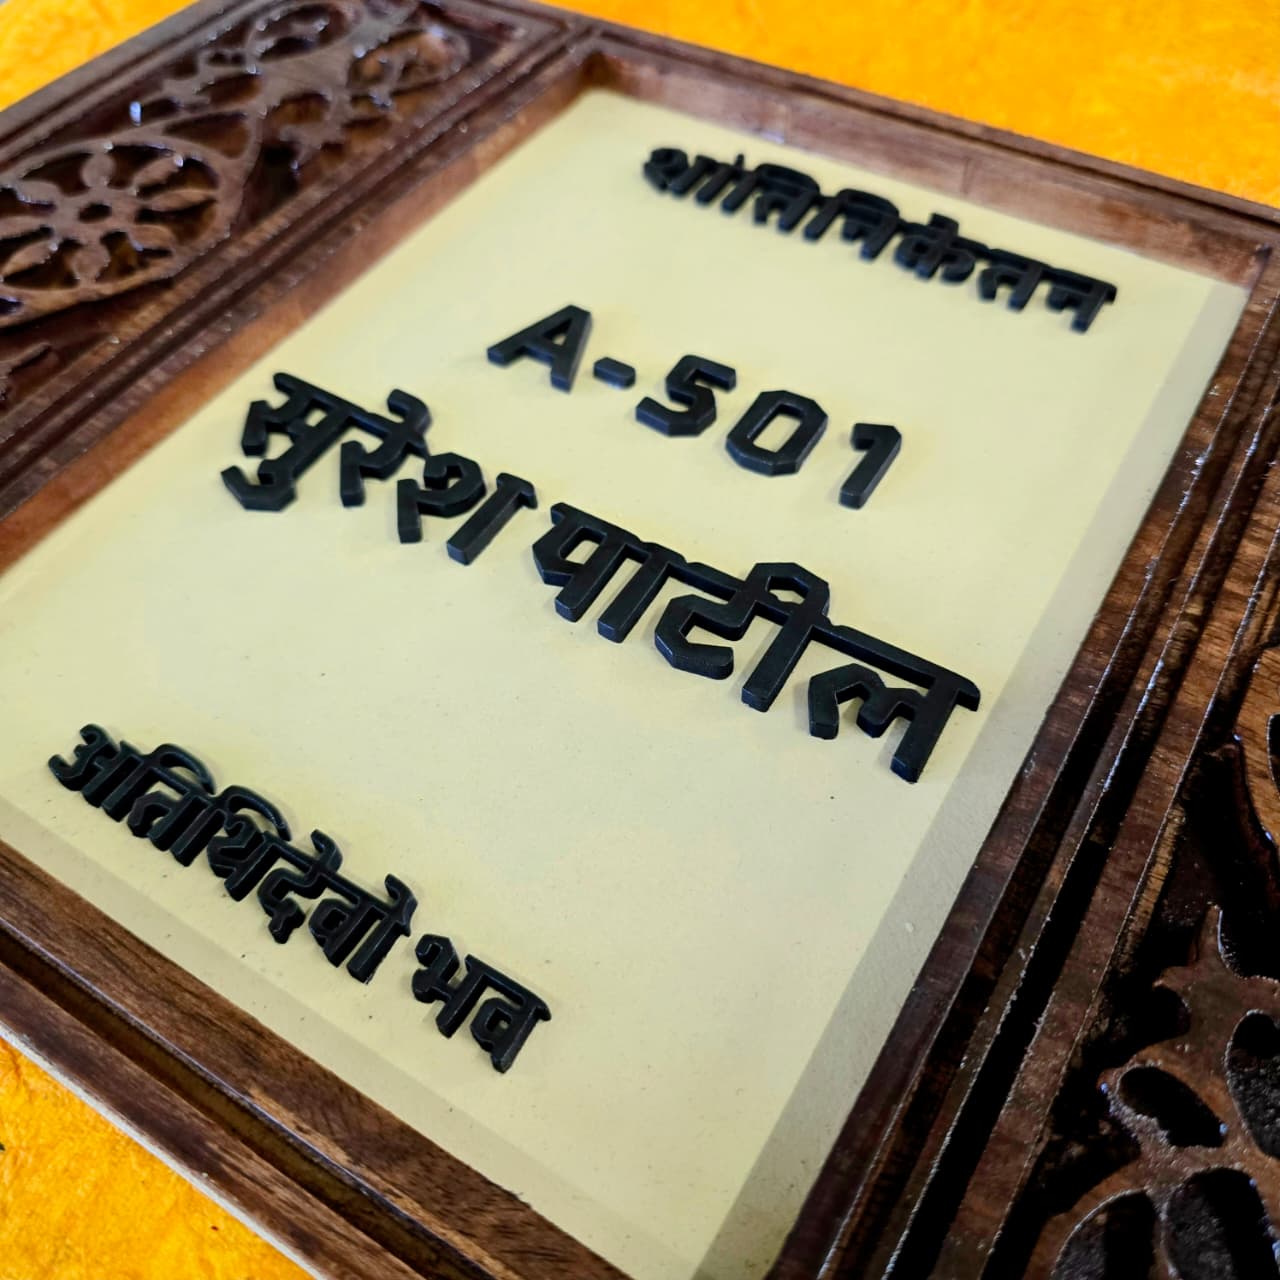 शांतिनिकेतन
A-501
सुरेश पाटील
अतिथिदेवो भव